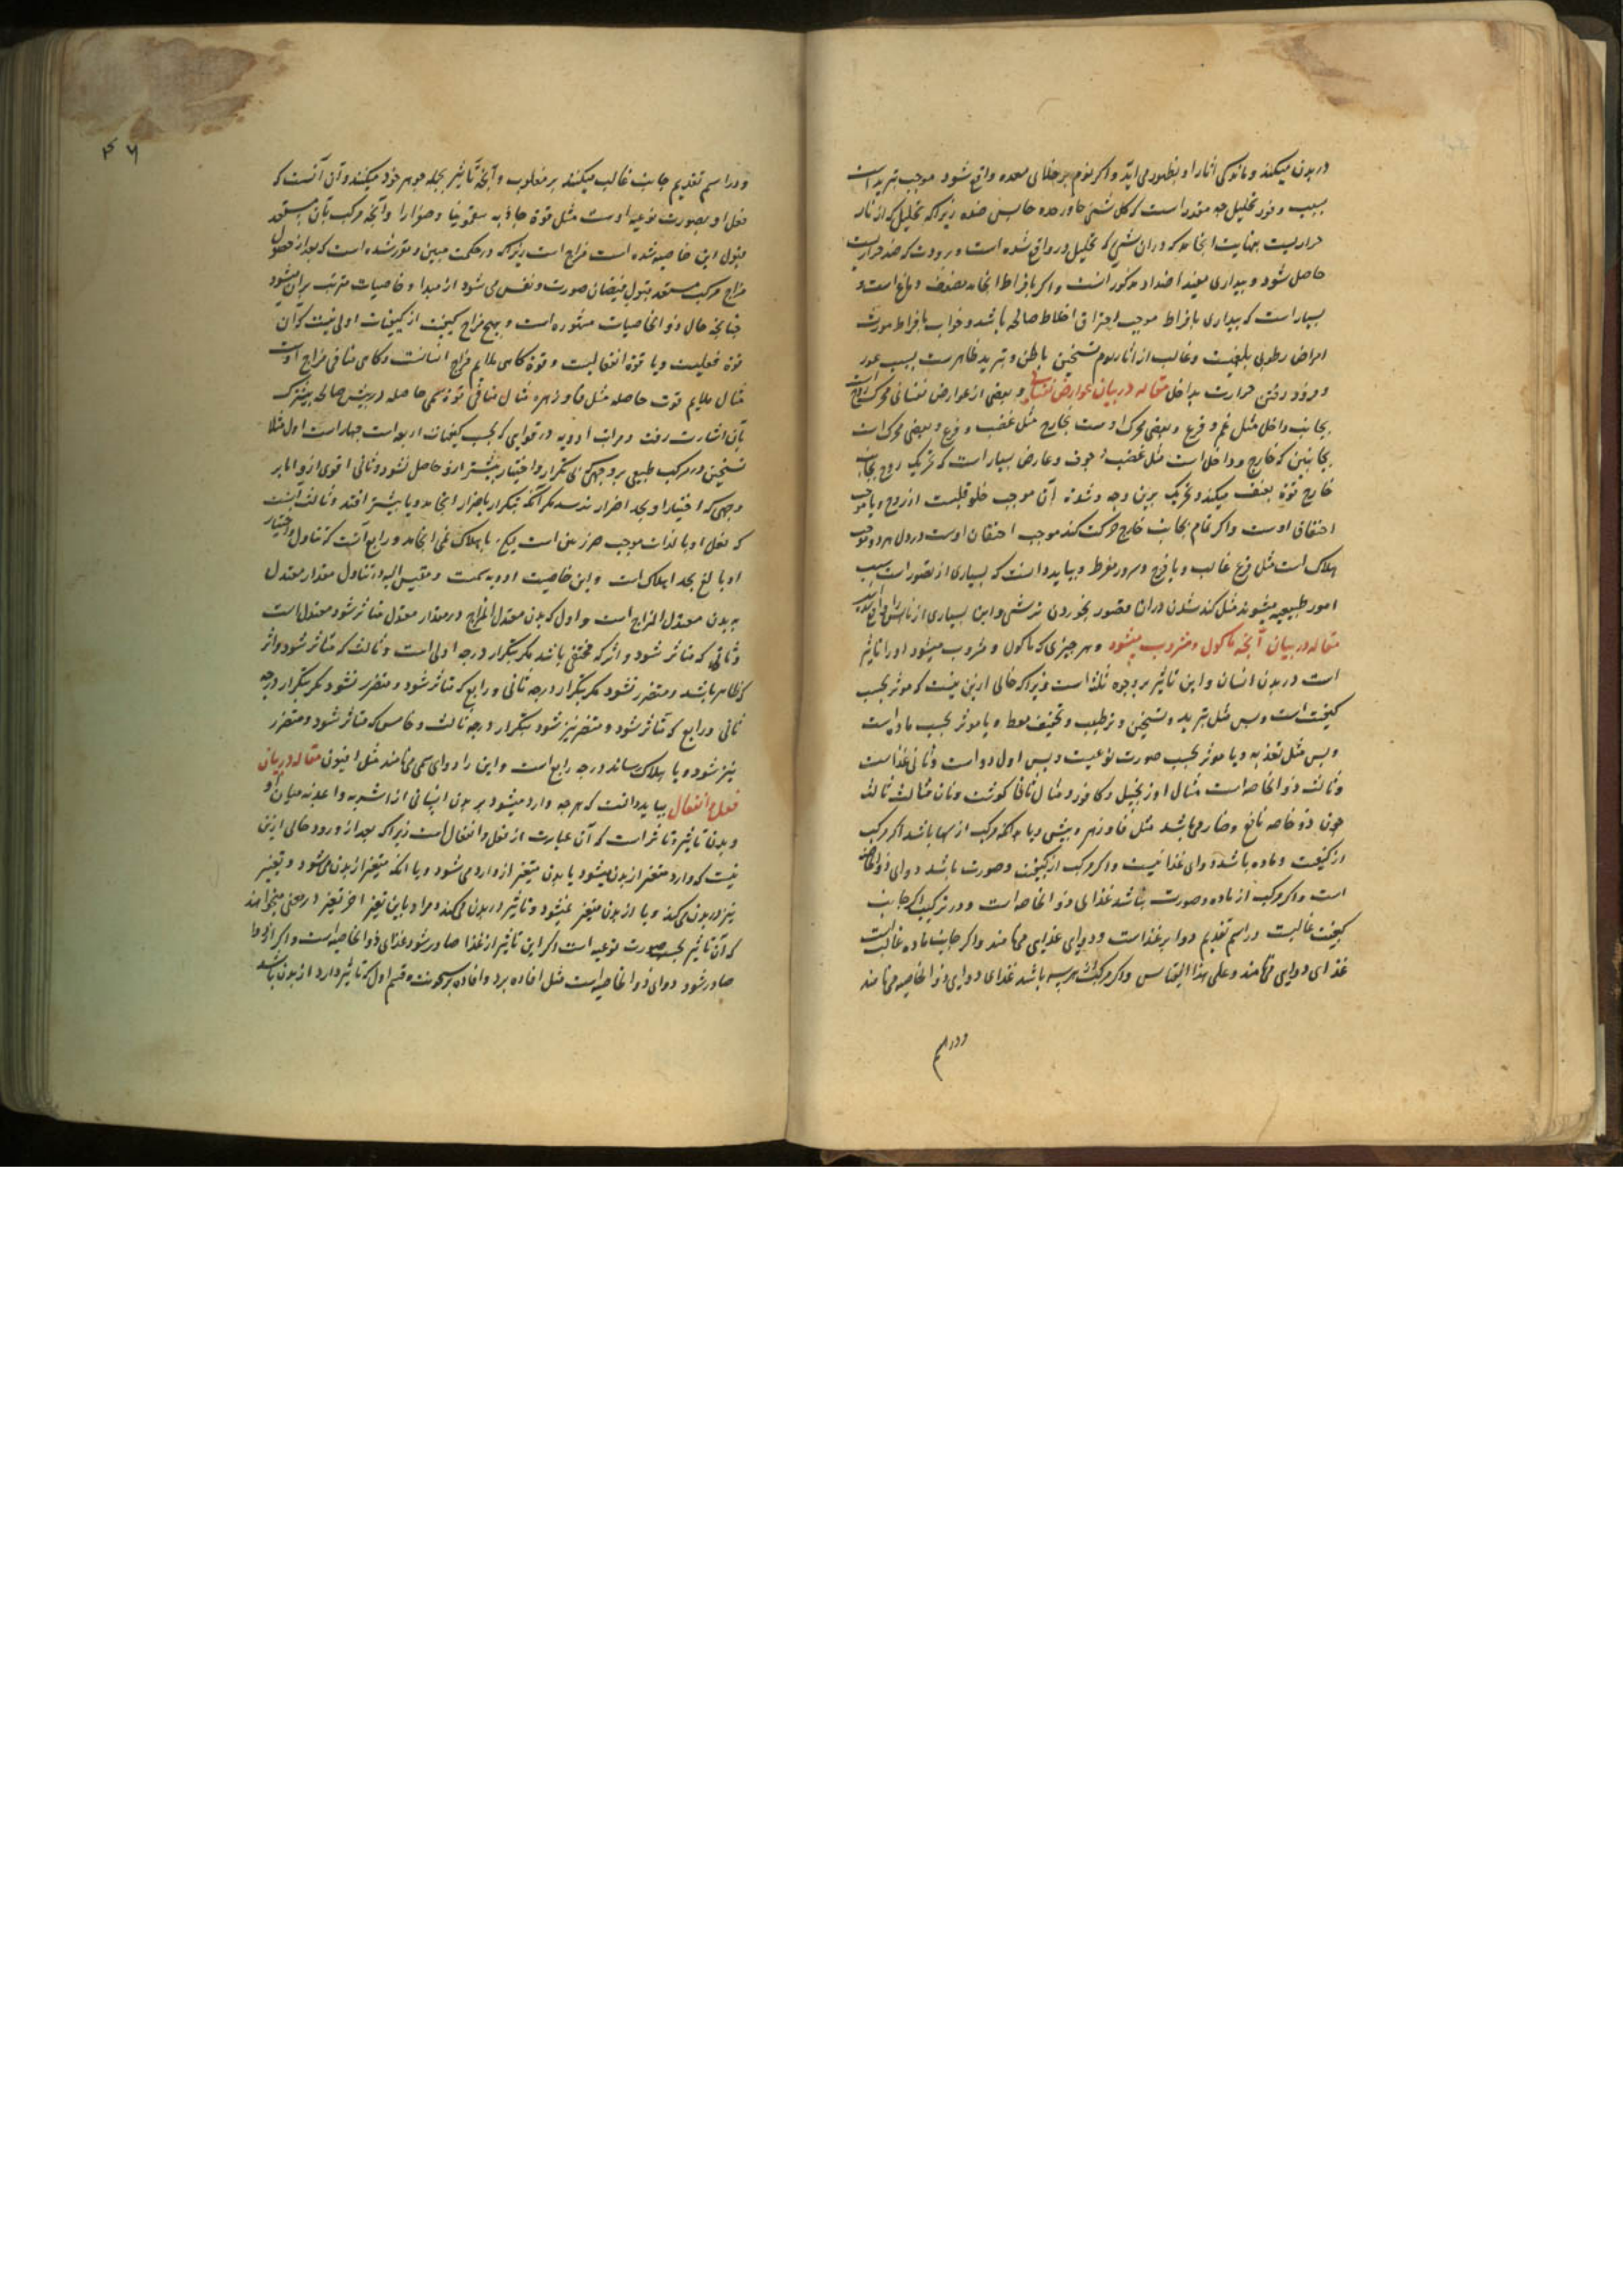 در بدن میکند و مانوسکی اثار او بظهور می آید و اگر نوم بر خلای معده واقع شود موجب تبرید است
بسبب وفور تحلیل چه مقدر است که کل شئ جاوز حده جانس ضده زیرا که تحلیل که از نار
حاصل شود و بیداری مفید اضداد مذکور است و اگر بافراط انجامد مضعف دماغ است و
بسیار است که بیداری بافراط موجب احتراق اخلاط صالحه باشد و خواب بافراط مورث
امراض رطوبی بلغمیست و غالب از اثار نوم تسخین باطن و تبرید ظاهر است بسبب غور
و فرو رفتن حرارت بداخل مقاله در بیان عوارض نفسانی و بعضی از عوارض نفسانی محرک
بجانب داخل مثل غم و فزع و بعضی محرک اوست بخارج مثل غضب و فرح و بعضی محرک است
بجانبین که خارج و داخل است مثل غضب خوف و عارض بسیار است که تحریک روح بجانب
خارج بقوة بعنف میکند و تحریک برین وجه آن موجب خلو قلبست از روح و یا موجب
احتقان اوست و اگر تمام بجانب خارج حرکت کند موجب احتقان اوست در دل و هر دو موجب
هلاک است مثل فزع غالب و یا فرح و سرور مفرط و بباید دانست که بسیاری از تصورات سبب
امور طبیعیه میشوند مثل کند شدن دندان بتصور بخوردن ترشی و این بسیاری از ناس را واقع
مقاله در بیان آنچه ماکول و مشروب میشود و هر چیزی که ماکول و مشروب میشود او را تاثیر
است در بدن انسان و این تاثیر بر وجوه ثلثه است زیرا که خالی ازین نیست که موثر بحسب
کیفیت است و بس مثل تبرید و تسخین و ترطیب و تجفیف فقط و یا موثر بحسب ماده است
و بس مثل تغذیه و یا موثر بحسب صورت نوعیت و بس اول دواست و ثانی غذاست
و ثالث ذو الخاصه است مثال اول زنجبیل و کافور و مثال ثانی گوشت و نان مثال ثالث
چون ذو خاصه نافع و ضار می باشد مثل فادزهر و بیش و یا آنکه مرکب از اینها باشد اگر مرکب
از کیفیت و ماده باشد دوای غذائیست و اگر مرکب از کیفیت و صورت باشد دوای ذو الخاصه
است و اگر مرکب از ماده و صورت باشد غذای ذو الخاصه است و در ترکیب اگر جانب
کیفیت غالبست در اسم تقدیم دوا بر غذاست و دوای غذایی می نامند و اگر جانب ماده غالب است
غذای دوایی می نامند و علی هذا القیاس و اگر مرکب از هر سه باشد غذای دوایی ذو الخاصیه می نامند
و در اسم
۴۶
و در اسم تقدیم جانب غالب میکنند بر مغلوب و آنچه تاثیر بجمله جوهر خود میکند و آن آنست که
فعل او بصورت نوعیه اوست مثل قوة جاذبه سقمونیا و صفرا را و آنچه مرکب بآن مستعد
قبول این خاصیه شده است مزاج است زیرا که در حکمت مبین و مقرر شده است که بعد از حصول
مزاج مرکب مستعد قبول فیضان صورت و نفس می شود از مبدا و خاصیات مترتب بر آن میشود
چنانچه حال ذو الخاصیات مشهوره است و هیچ مزاج کیفیت از کیفیات اولی نیست که آن
قوة فعلیست و یا قوة انفعالیست و قوة گاهی ملایم مزاج انسانست و گاهی منافی مزاج اوست
مثال ملایم قوت حاصله مثل فادزهر مثال منافی قوة سمی حاصله در بیش
بآن اشارت رفت و مراتب ادویه در قوای که بحسب کیفیات اربعه است چهار است اول مثلا
تسخین در مرکب طبیعی بر وجهی که بی تکرار و اختیار بیشتر از و حاصل نشود و ثانی اقوی از و اما بر
وجهی که اختیار او بحد اضرار نرسد مگر آنکه بتکرار باضرار انجامد و یا بیشتر افتد و ثالث آنست
که فعل او بالذات موجب ضرر بین است لیکن باهلاک نمی انجامد و رابع آنست که تناول و اختیار
او بالغ بحد اهلاک است و این خاصیت ادویه سمیت و مقیس الیه در تناول مقدار معتدل
به بدن معتدل المزاج است و اول که بدن معتدل المزاج در مقدار معتدل متاثر شود معتدل است
و ثانی که متاثر شود و اثر که مختفی باشد مگر بتکرار درجه اولی است و ثالث که متاثر شود و اثر
که ظاهر باشد و متضرر نشود مگر بتکرار درجه ثانی و رابع که متاثر شود و متضرر نشود مگر بتکرار درجه
ثانی و رابع که متاثر شود و متضرر نیز شود بتکرار درجه ثالث و خامس که متاثر شود و متضرر
نیز شود و یا بهلاک رساند درجه رابع است و این را دوای سمی می نامند مثل افیون مقاله در بیان
فعل و انفعال بباید دانست که هر چه وارد میشود بر بدن انسانی از اشربه و اغذیه میان او
و بدن تاثیر و تاثر است که آن عبارت از فعل و انفعال است زیرا که بعد از ورود خالی ازین
نیست که وارد متغیر از بدن میشود یا بدن متغیر از وارد می شود و یا آنکه متغیر از بدن می شود و تغییر
نیز در بدن می کند و یا از بدن متغیر نمیشود و تاثیر در بدن می کند و مراد باین تغیر اخر تغیر در معنی میخواهند
که آن تاثیر بحسب صورت نوعیه است اگر این تاثیر از غذا صادر شود غذای ذو الخاصیه است و اگر از دوا
صادر شود دوای ذو الخاصیه است مثل افاده برد و افاده سخونت و قسم اول که تاثیر دارد از بدن باشد